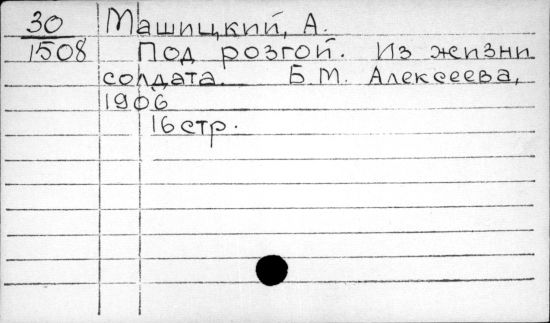 30 Машицкий, А.
1508 Под розгой. Из жизни
солдата. Б.М. Алексеева,
1906
16 стр.